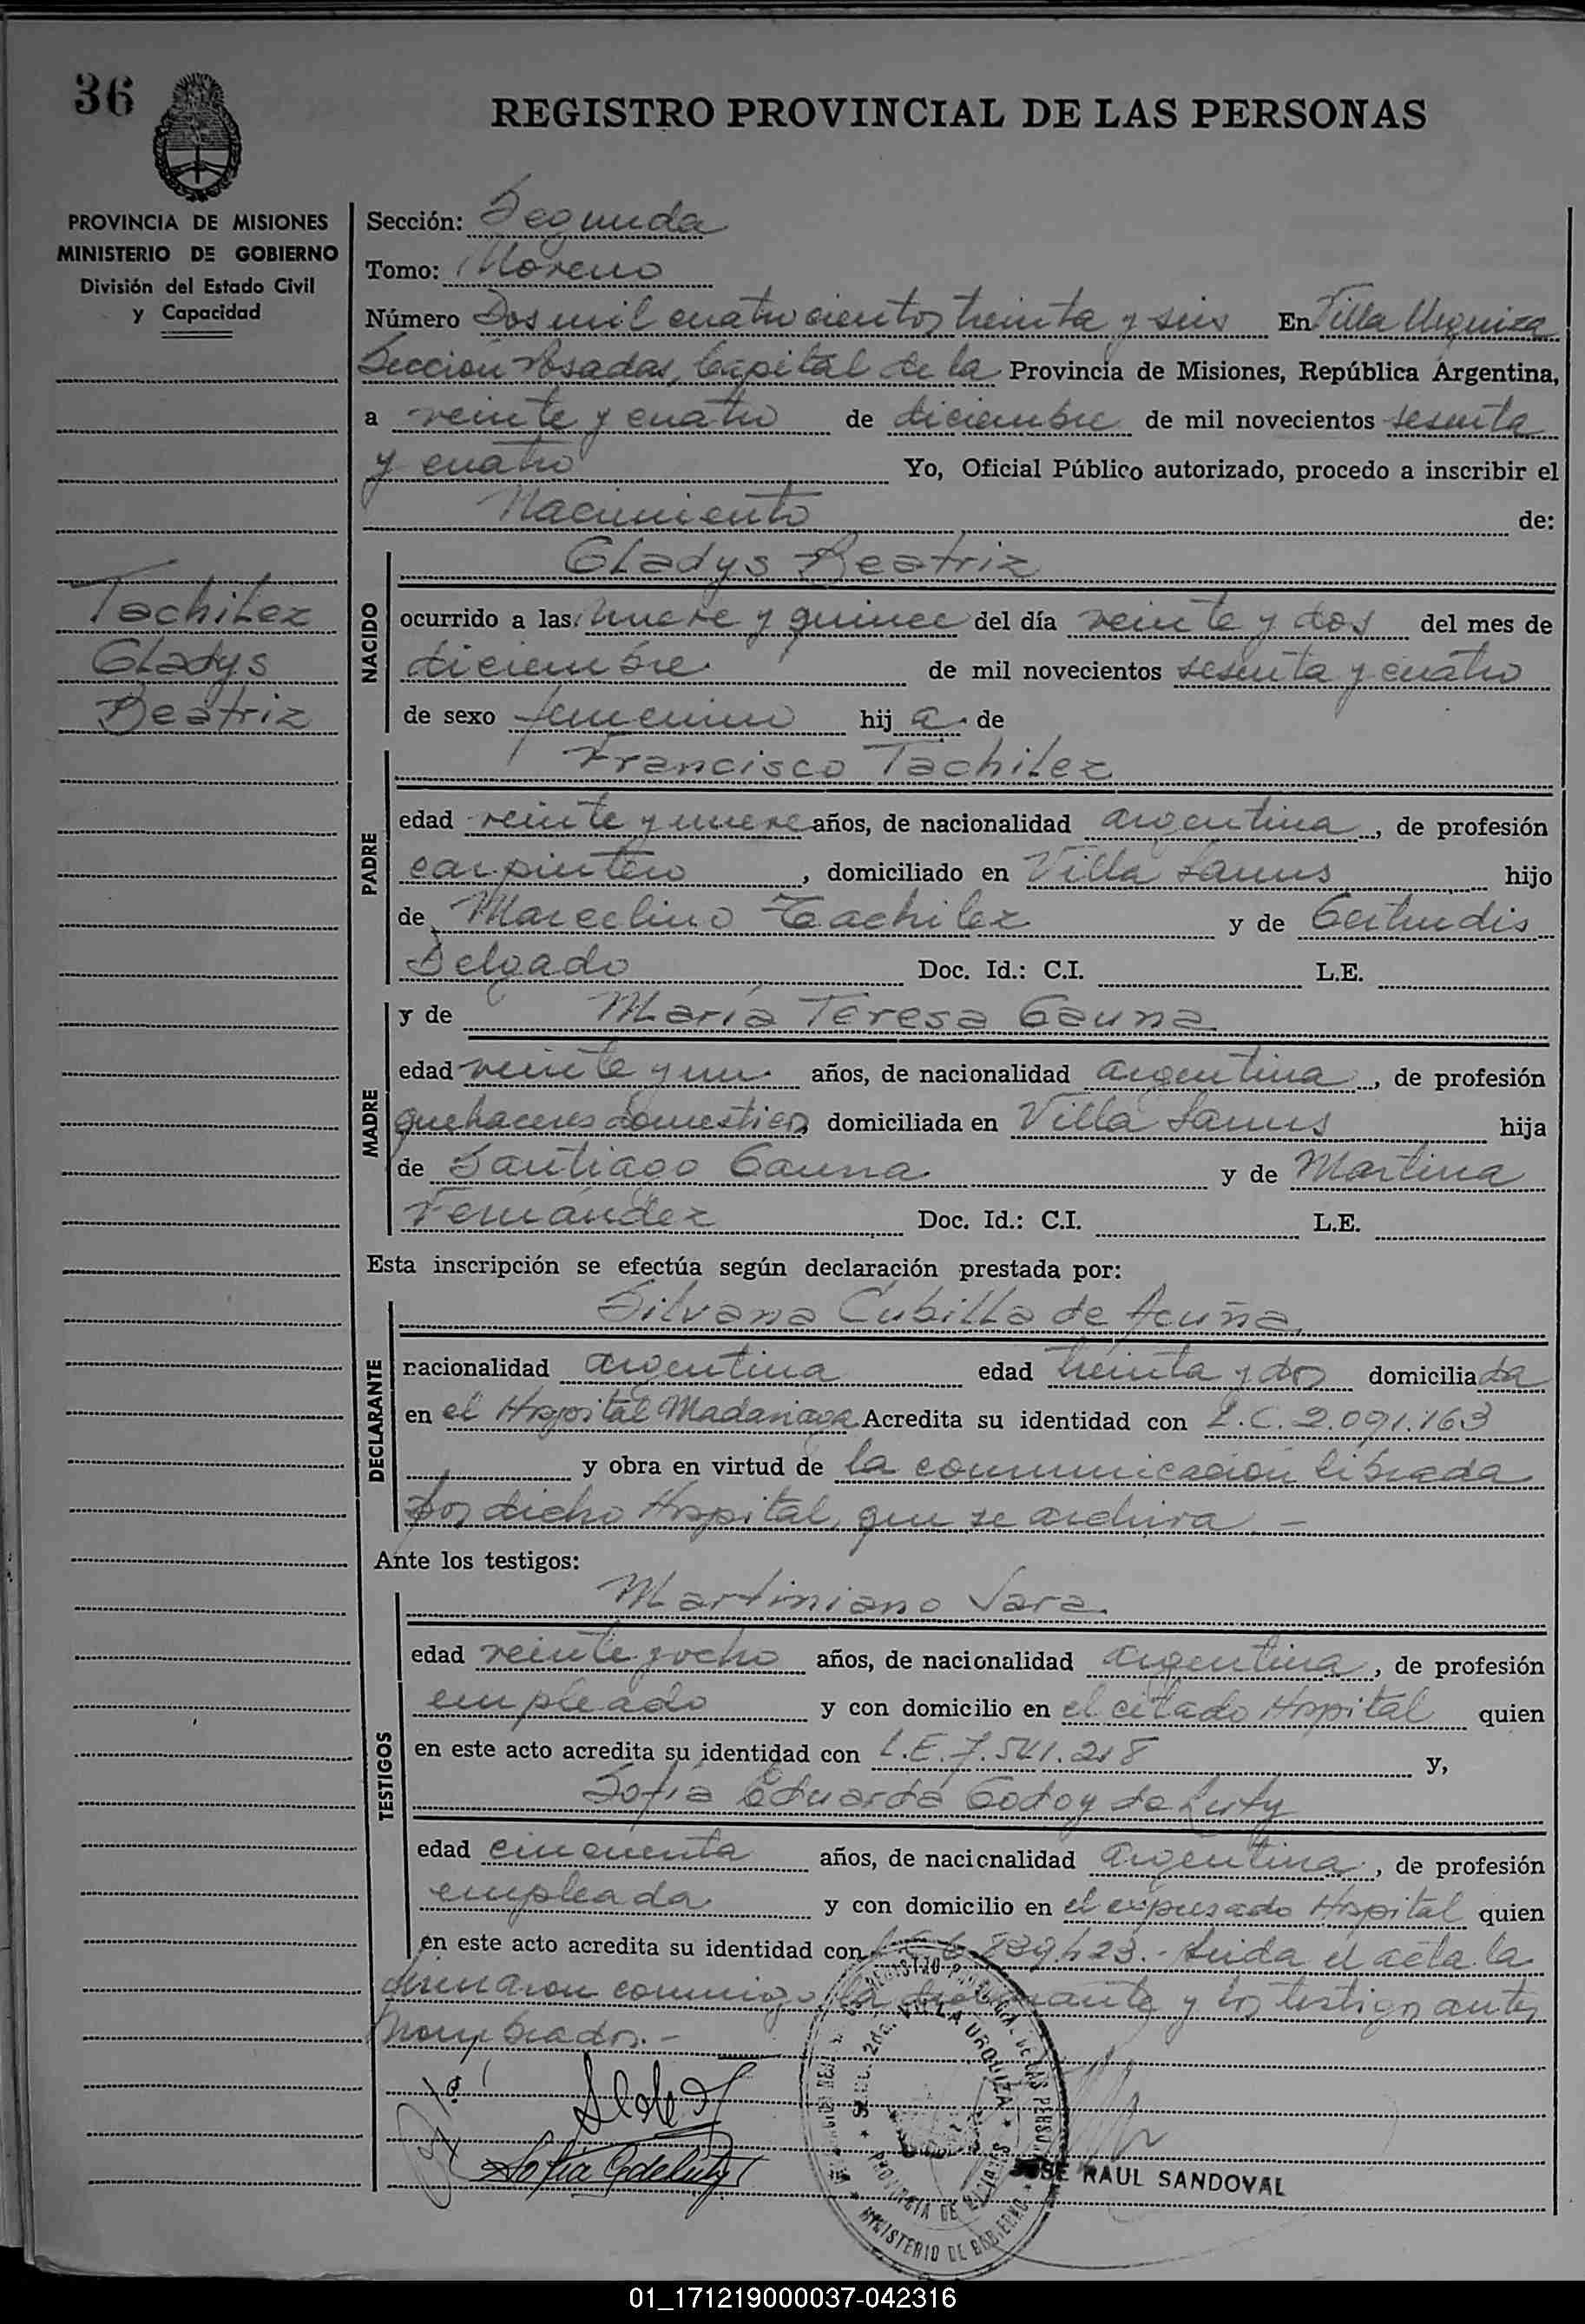 36
REGISTRO PROVINCIAL DE LAS PERSONAS
PROVINCIA DE MISIONES
MINISTERIO DE GOBIERNO
División del Estado Civil
y Capacidad
Tachilez
Gladys
Beatriz
Sección: Segunda
Tomo: Moreno
Número Dos mil cuatrocientos treinta y seis En Villa Urquiza
Sección Posadas, Capital de la Provincia de Misiones, República Argentina,
a veinte y cuatro de diciembre de mil novecientos sesenta
y cuatro Yo, Oficial Público autorizado, procedo a inscribir el
Nacimiento de:
NACIDO
Gladys Beatriz
ocurrido a las nueve y quince del día veinte y dos del mes de
diciembre de mil novecientos sesenta y cuatro
de sexo femenino hij a de
PADRE
Francisco Tachilez
edad veinte y nueve años, de nacionalidad argentina, de profesión
carpintero, domiciliado en Villa Lanus hijo
de Marcelino Tachilez y de Gertrudis
Delgado Doc. Id.: C.I. L.E.
MADRE
y de María Teresa Gauna
edad veinte y un años, de nacionalidad argentina, de profesión
quehaceres domesticos domiciliada en Villa Lanus hija
de Santiago Gauna y de Martina
Fernández Doc. Id.: C.I. L.E.
Esta inscripción se efectúa según declaración prestada por:
DECLARANTE
Silvana Cubilla de Acuña
nacionalidad argentina edad treinta y dos domiciliada
en el Hospital Madariaga Acredita su identidad con L.C. 2.091.163
y obra en virtud de la comunicación librada
por dicho Hospital, que se archiva. -
Ante los testigos:
TESTIGOS
Martiniano Jara.
edad veinte y ocho años, de nacionalidad argentina, de profesión
empleado y con domicilio en el citado Hospital quien
en este acto acredita su identidad con L.E. 7.541.218 y,
Sofia Eduarda Godoy de Luty
edad cincuenta años, de nacionalidad argentina, de profesión
empleada y con domicilio en el expresado Hospital quien
en este acto acredita su identidad con 839.423.- Leida el acta la
firmaron conmigo la declarante y los testigos antes
nombrados. -
REGISTRO PROVINCIAL DE LAS PERSONAS
SECC. 2da. VILLA URQUIZA
PROVINCIA DE MISIONES
MINISTERIO DE GOBIERNO
JOSE RAUL SANDOVAL
01_171219000037-042316